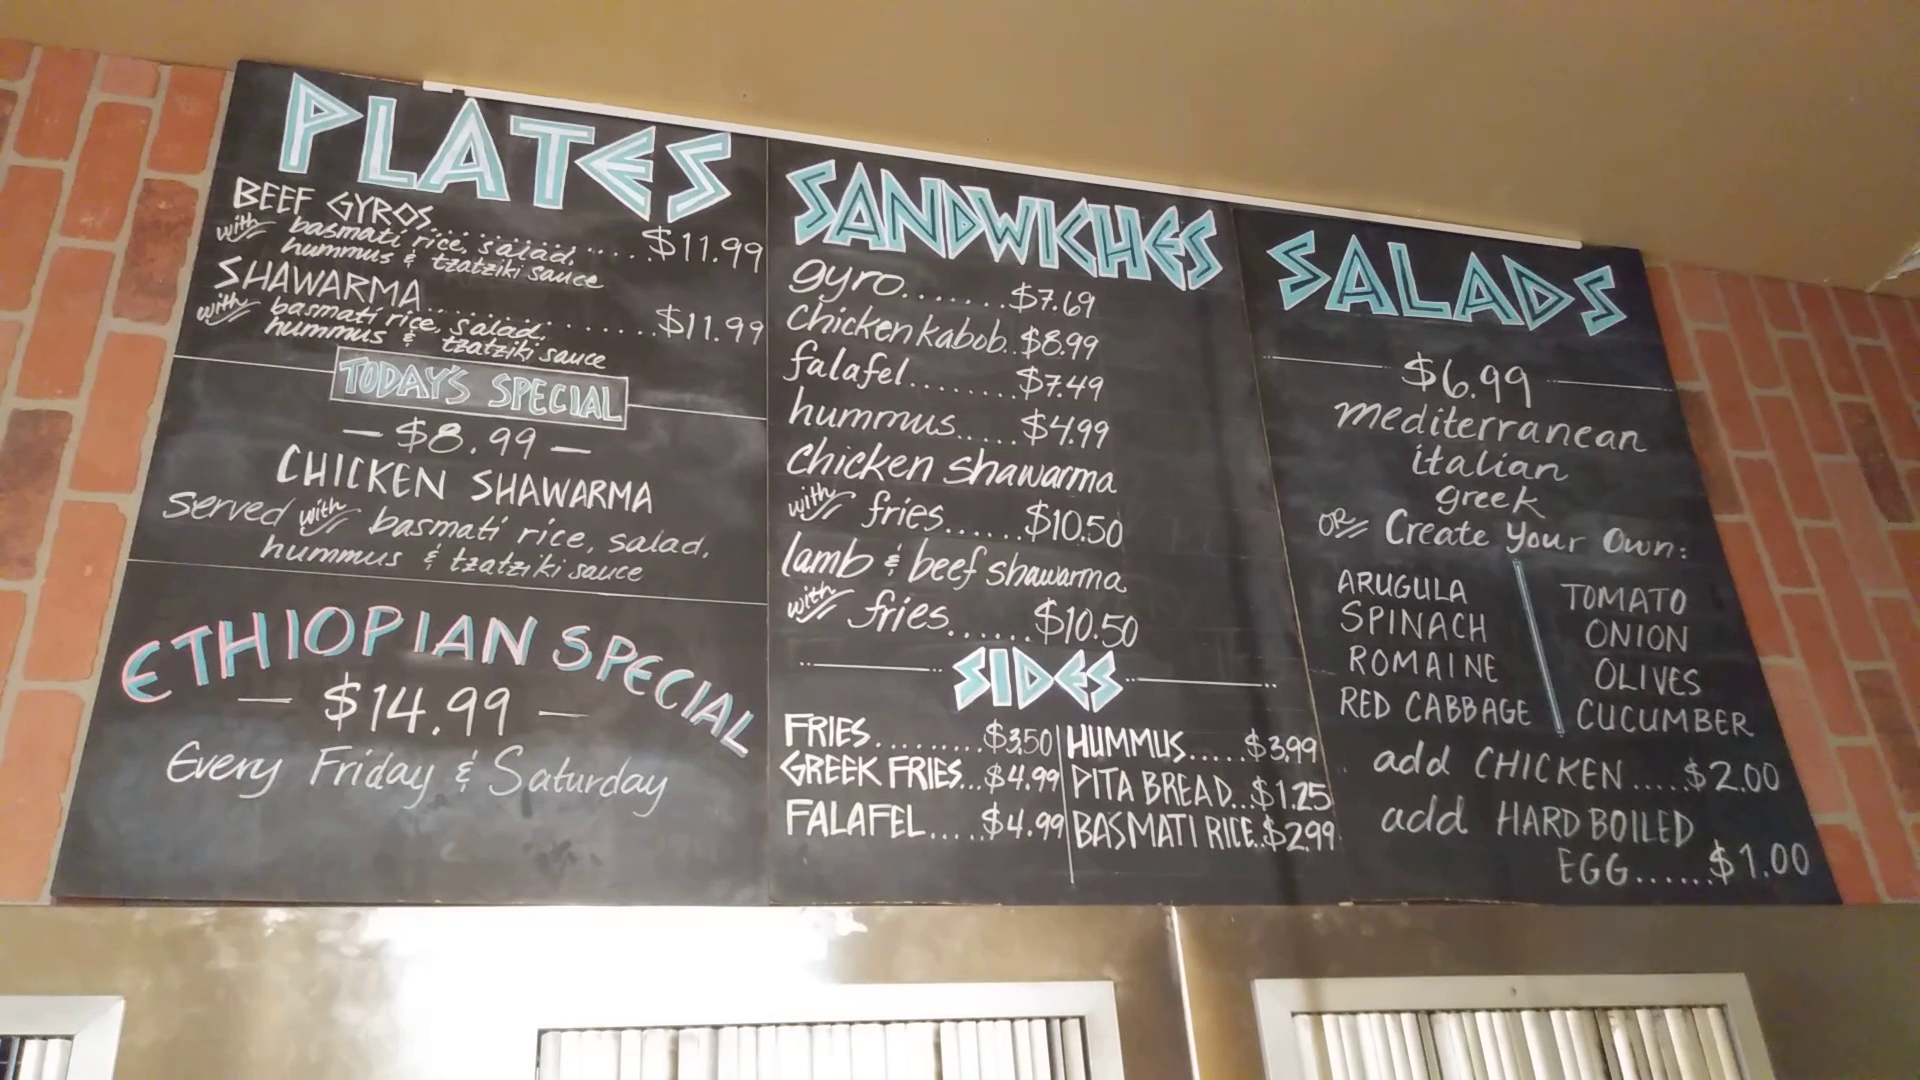 PLATES
BEEF GYROS.............$11.99
with basmati rice, salad,
hummus & tzatziki sauce
SHAWARMA.............$11.99
with basmati rice, salad,
hummus & tzatziki sauce
TODAY'S SPECIAL
— $8.99 —
CHICKEN SHAWARMA
Served with basmati rice, salad,
hummus & tzatziki sauce
ETHIOPIAN SPECIAL
— $14.99 —
Every Friday & Saturday
SANDWICHES
gyro.......$7.69
Chicken kabob..$8.99
falafel.......$7.49
hummus.....$4.99
Chicken shawarma
with fries......$10.50
lamb & beef shawarma
with fries.......$10.50
SIDES
FRIES.........$3.50
GREEK FRIES...$4.99
FALAFEL.....$4.99
HUMMUS.....$3.99
PITA BREAD...$1.25
BASMATI RICE..$2.99
SALADS
$6.99
mediterranean
italian
greek
OR Create Your Own:
ARUGULA
SPINACH
ROMAINE
RED CABBAGE
TOMATO
ONION
OLIVES
CUCUMBER
add CHICKEN.....$2.00
add HARD BOILED
EGG......$1.00